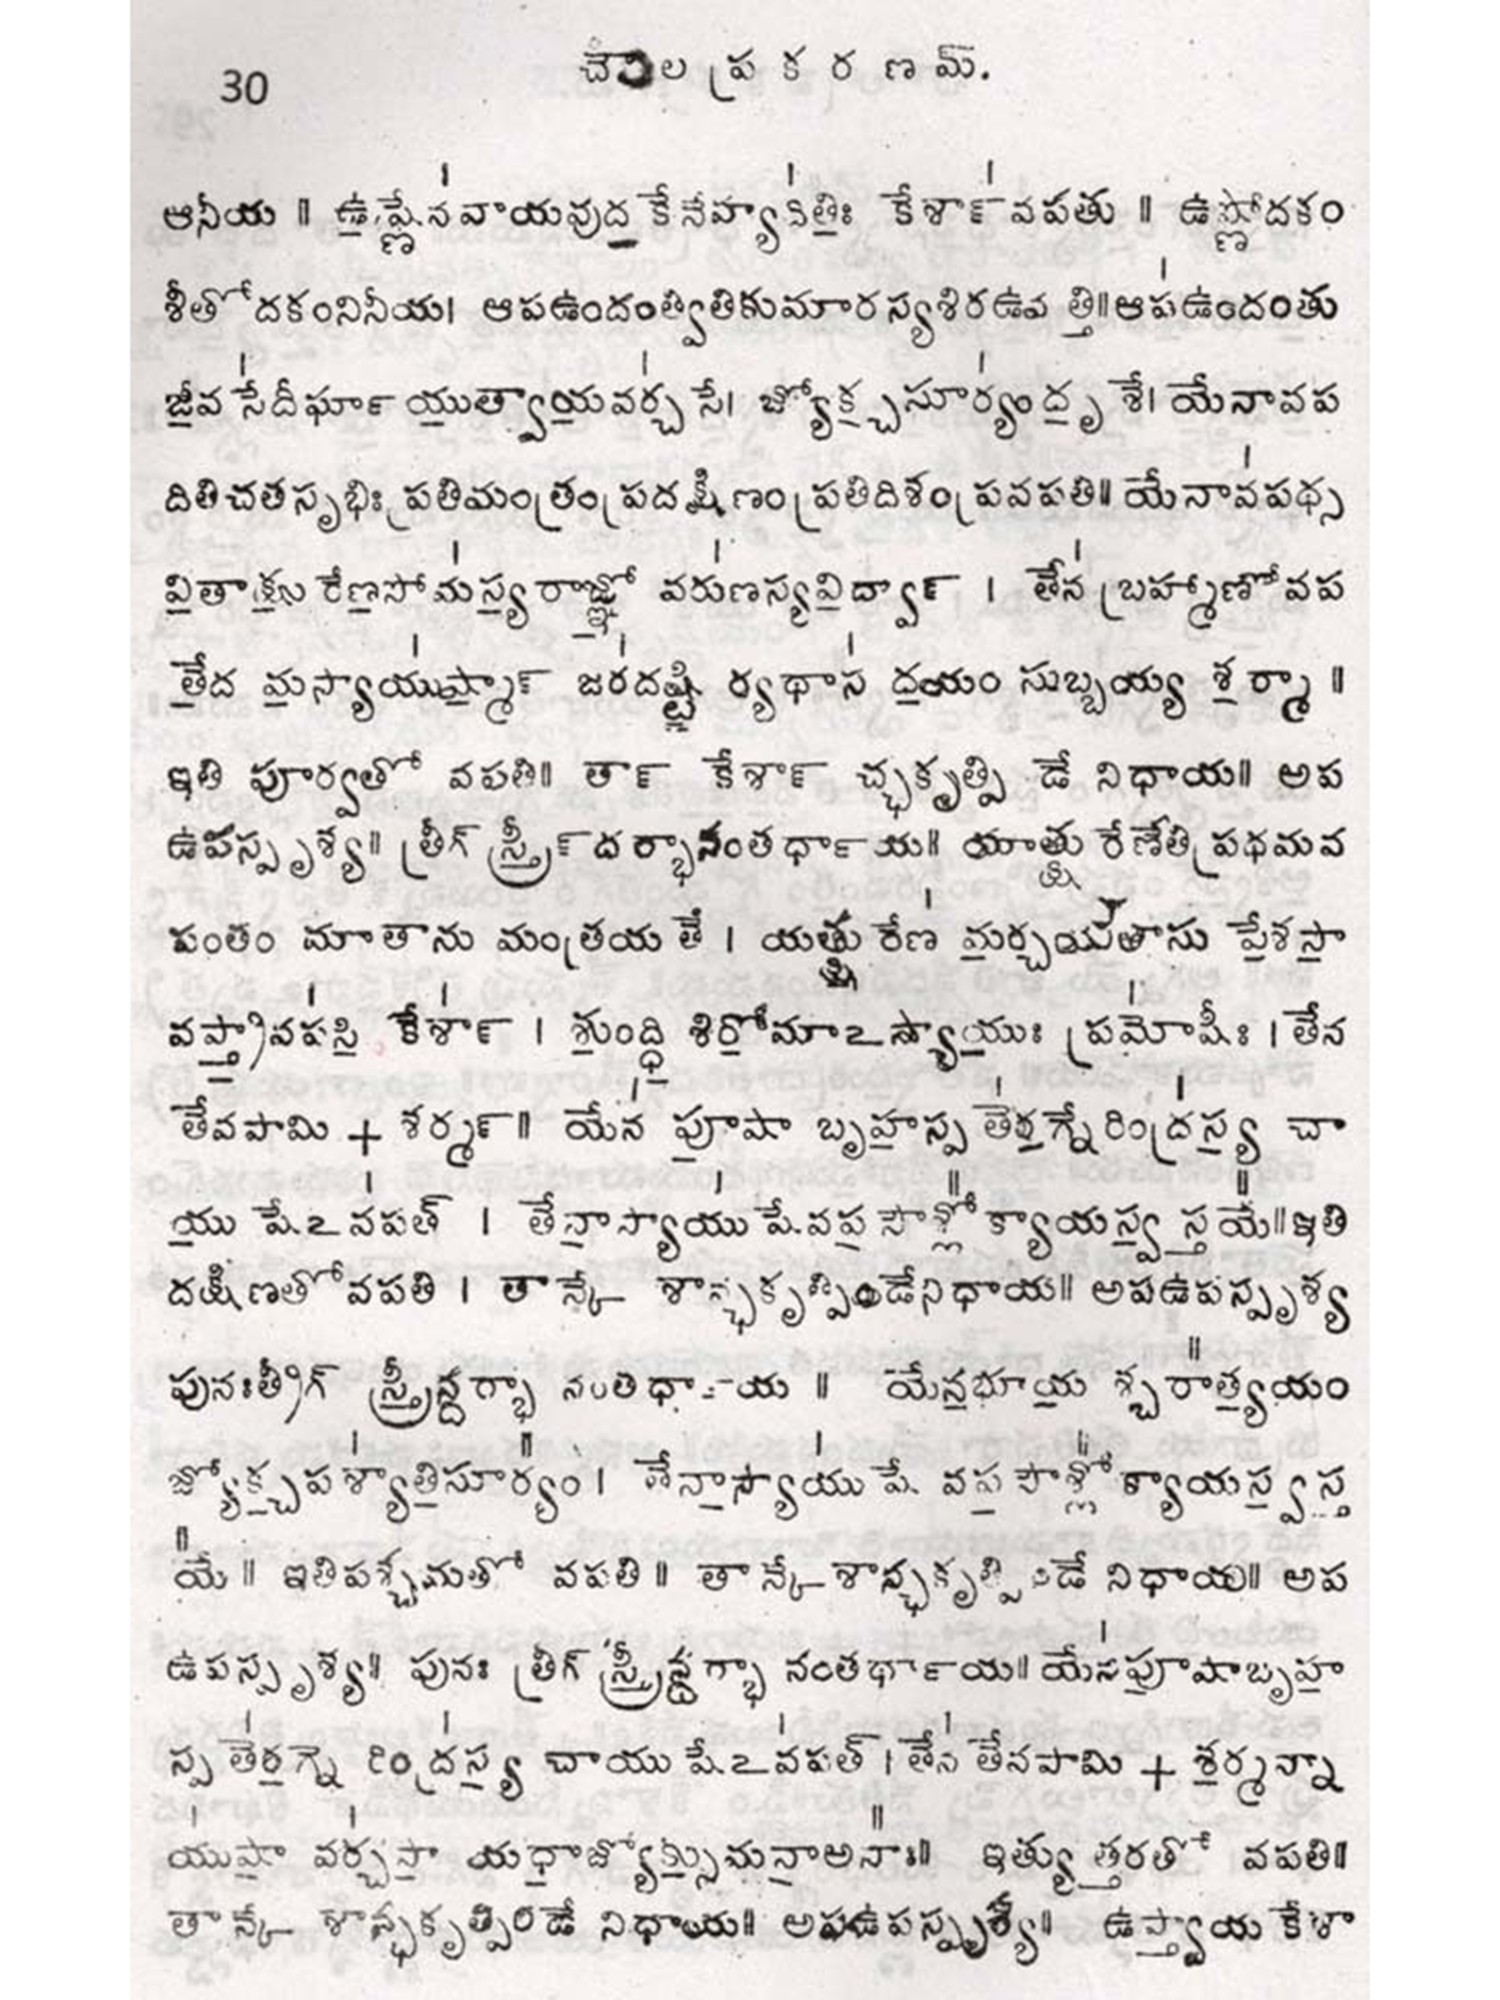 30
చౌల ప్రకరణమ్.
ఆనీయ ॥ ఉ॒ష్ణేన॑వాయవుద॒కేనేహ్య॑ దితిః॒ కేశా᳚న్ వపతు ॥ ఉష్ణోదకం
శీతోదకంనినీయ। ఆపఉందంత్వితికుమారస్యశిరఉవత్తి॥ఆప॑ఉందంతు
జీ॒వసే॑దీర్ఘాయు॒త్వాయ॒వర్చ॑సే। జ్యోక్చ॒సూర్యం॑దృ॒శే। యేనావప
దితిచతసృభిః ప్రతిమంత్రం ప్రదక్షిణం ప్రతిదిశం ప్రవపతి॥ యేనావ॑పథ్స
వి॒తాక్షు॒రేణ॒సోమ॑స్య॒రాజ్ఞో॒ వరు॑ణస్యవి॒ద్వాన్ । తేన॑ బ్రహ్మాణోవప
తే॒ద మ॒స్యాయు॑ష్మా॒న్ జర॑దష్టి॒ ర్యథాస॑ ద॒యం సుబ్బయ్య శ॒ర్మా ॥
ఇతి పూర్వతో వపతి॥ తాన్ కేశాన్ చ్ఛకృత్పి డే నిధాయ॥ అప
ఉపస్పృశ్య॥ త్రీగ్ స్త్రీన్దర్భానంతర్ధాయ॥ యాత్క్షురేణేతి ప్రథమవ
పంతం మాతాను మంత్రయతే । యత్క్షురేణ॑ మ॒ర్చయ॑తాసు పే॒శసా॒
వప్త్రా॒వప॑సి॒ కేశా॑న్ । శుం॒ద్ధి॒ శిరో॒మాఽస్యాయుః॒ ప్రమో॑షీః । తేన
తేవపామి + శర్మన్॥ యేన॑ పూ॒షా బృహ॒స్పతే॑ర॒గ్నేరింద్ర॑స్య॒ చా
యు॒షేఽవ॑పత్ । తేనా॒స్యాయు॑షేవప॒ సౌశ్లో᳚క్యాయస్వ॒స్తయే᳚॥ఇతి
దక్షిణతోవపతి । తాన్కేశాన్ఛకృత్పిండేనిధాయ॥ అపఉపస్పృశ్య
పునఃత్రీగ్ స్త్రీన్దర్భానంతర్ధాయ ॥ యేన॒భూయ॒శ్చరా᳚త్య॒యం
జ్యోక్చ॒పశ్యా॑తి॒సూర్యం᳚। తేనా॒స్యాయు॑షే వప॒ సౌశ్లో᳚క్యాయస్వ॒స్త
యే᳚ ॥ ఇతిపశ్చిమతో వపతి॥ తాన్కేశాన్ఛకృత్పిండే నిధాయ॥ అప
ఉపస్పృశ్య॥ పునః త్రీగ్ స్త్రీన్దర్భానంతర్ధాయ॥యేన॑పూ॒షాబృహ॒
స్పతే॑ర॒గ్నేరింద్ర॑స్య॒ చాయుషేఽవ॑పత్।తేన॑ తేనపామి + శ॒ర్మన్నా
యు॑షా॒ వర్చ॑సా॒ యథా॒జ్యోక్సు॒మనా॒అసా᳚ః॥ ఇత్యుత్తరతో వపతి॥
తాన్కేశాన్ఛకృత్పిండే నిధాయ॥ అపఉపస్పృశ్య॥ ఉప్త్వాయ కేశా